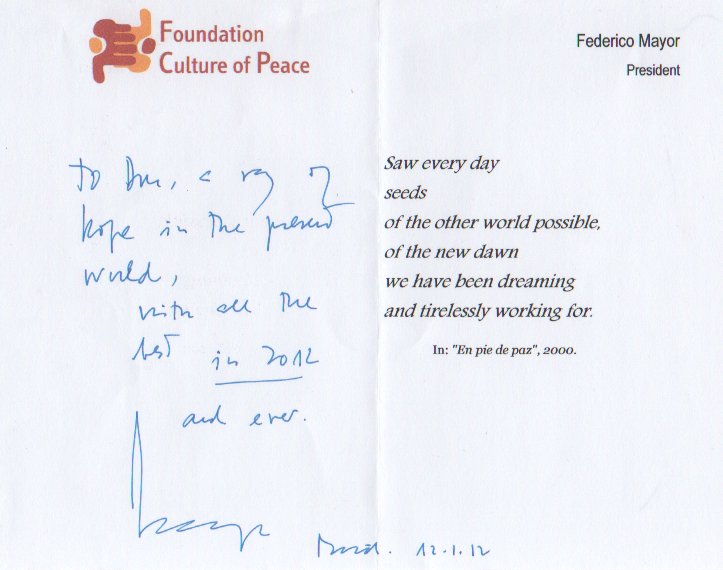 Foundation
Culture of Peace
Federico Mayor
President
To a ray of
hope in the present
world,
with all the
best in 2012
and ever.
12.1.12
Saw every day
seeds
of the other world possible,
of the new dawn
we have been dreaming
and tirelessly working for.
In: "En pie de paz", 2000.